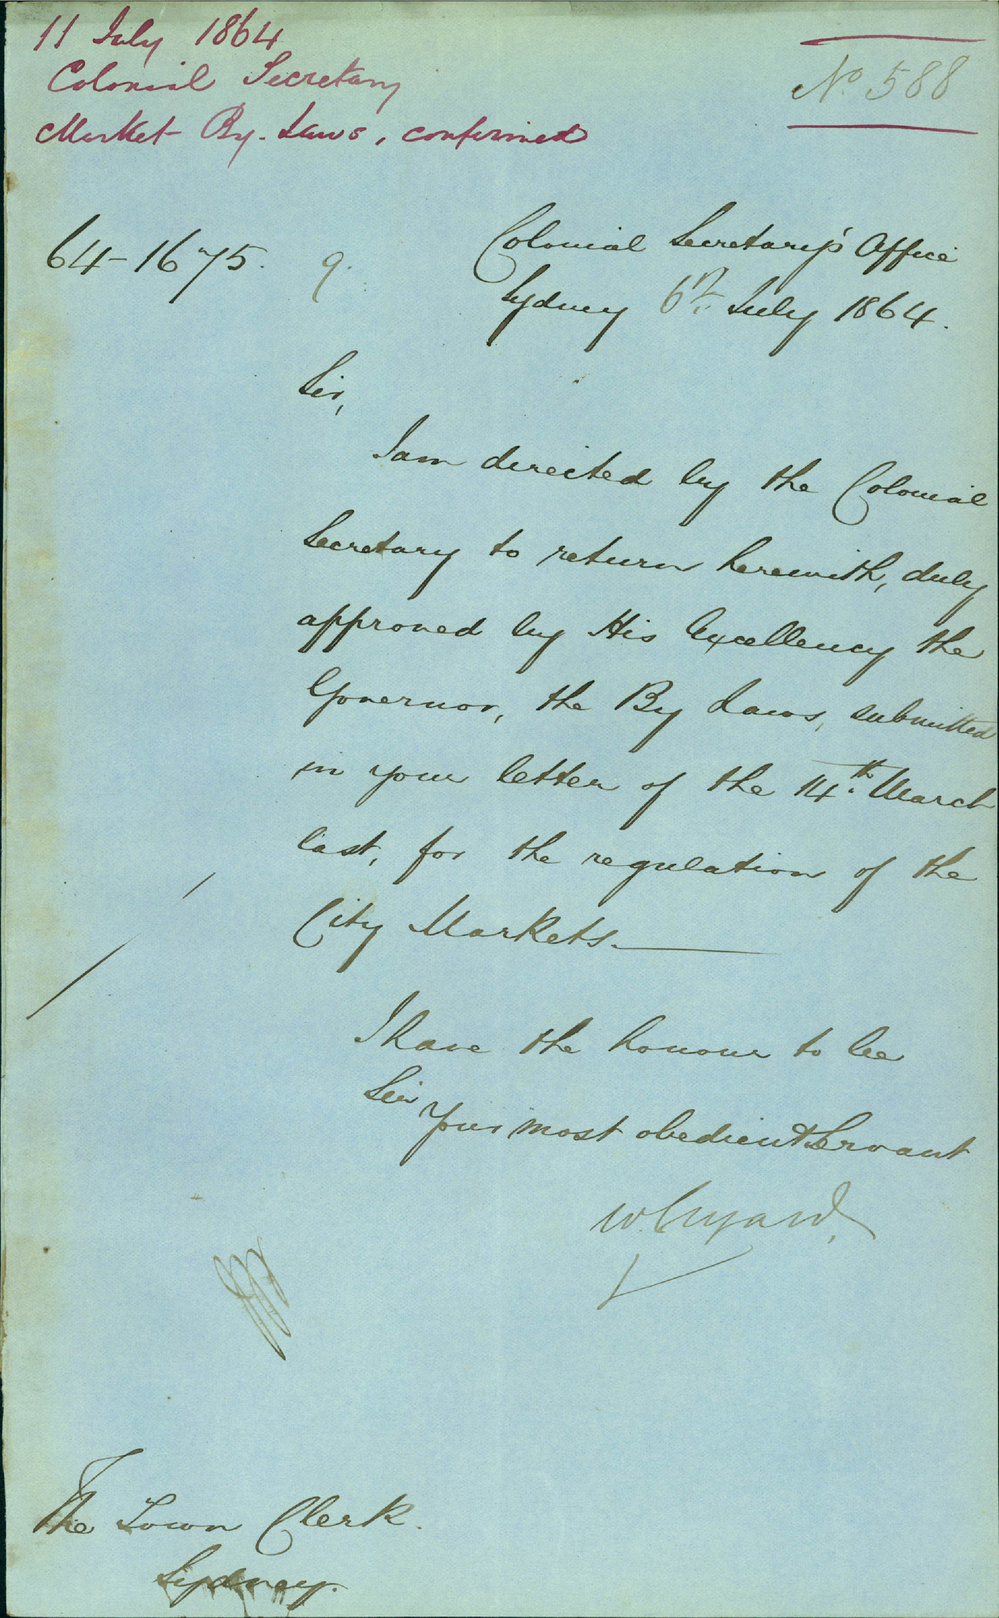 11 July 1864
Colonial Secretary
Market By-Laws, confirmed
No 588
64-1675. 9.
Colonial Secretary's Office
Sydney 6th July 1864.
Sir,
I am directed by the Colonial
Secretary to return herewith, duly
approved by His Excellency the
Governor, the By Laws, submitted
in your letter of the 14th March
last, for the regulation of the
City Markets.
I have the honour to be
Sir
Your most obedient Servant
W Elyard.
The Town Clerk.
Sydney.